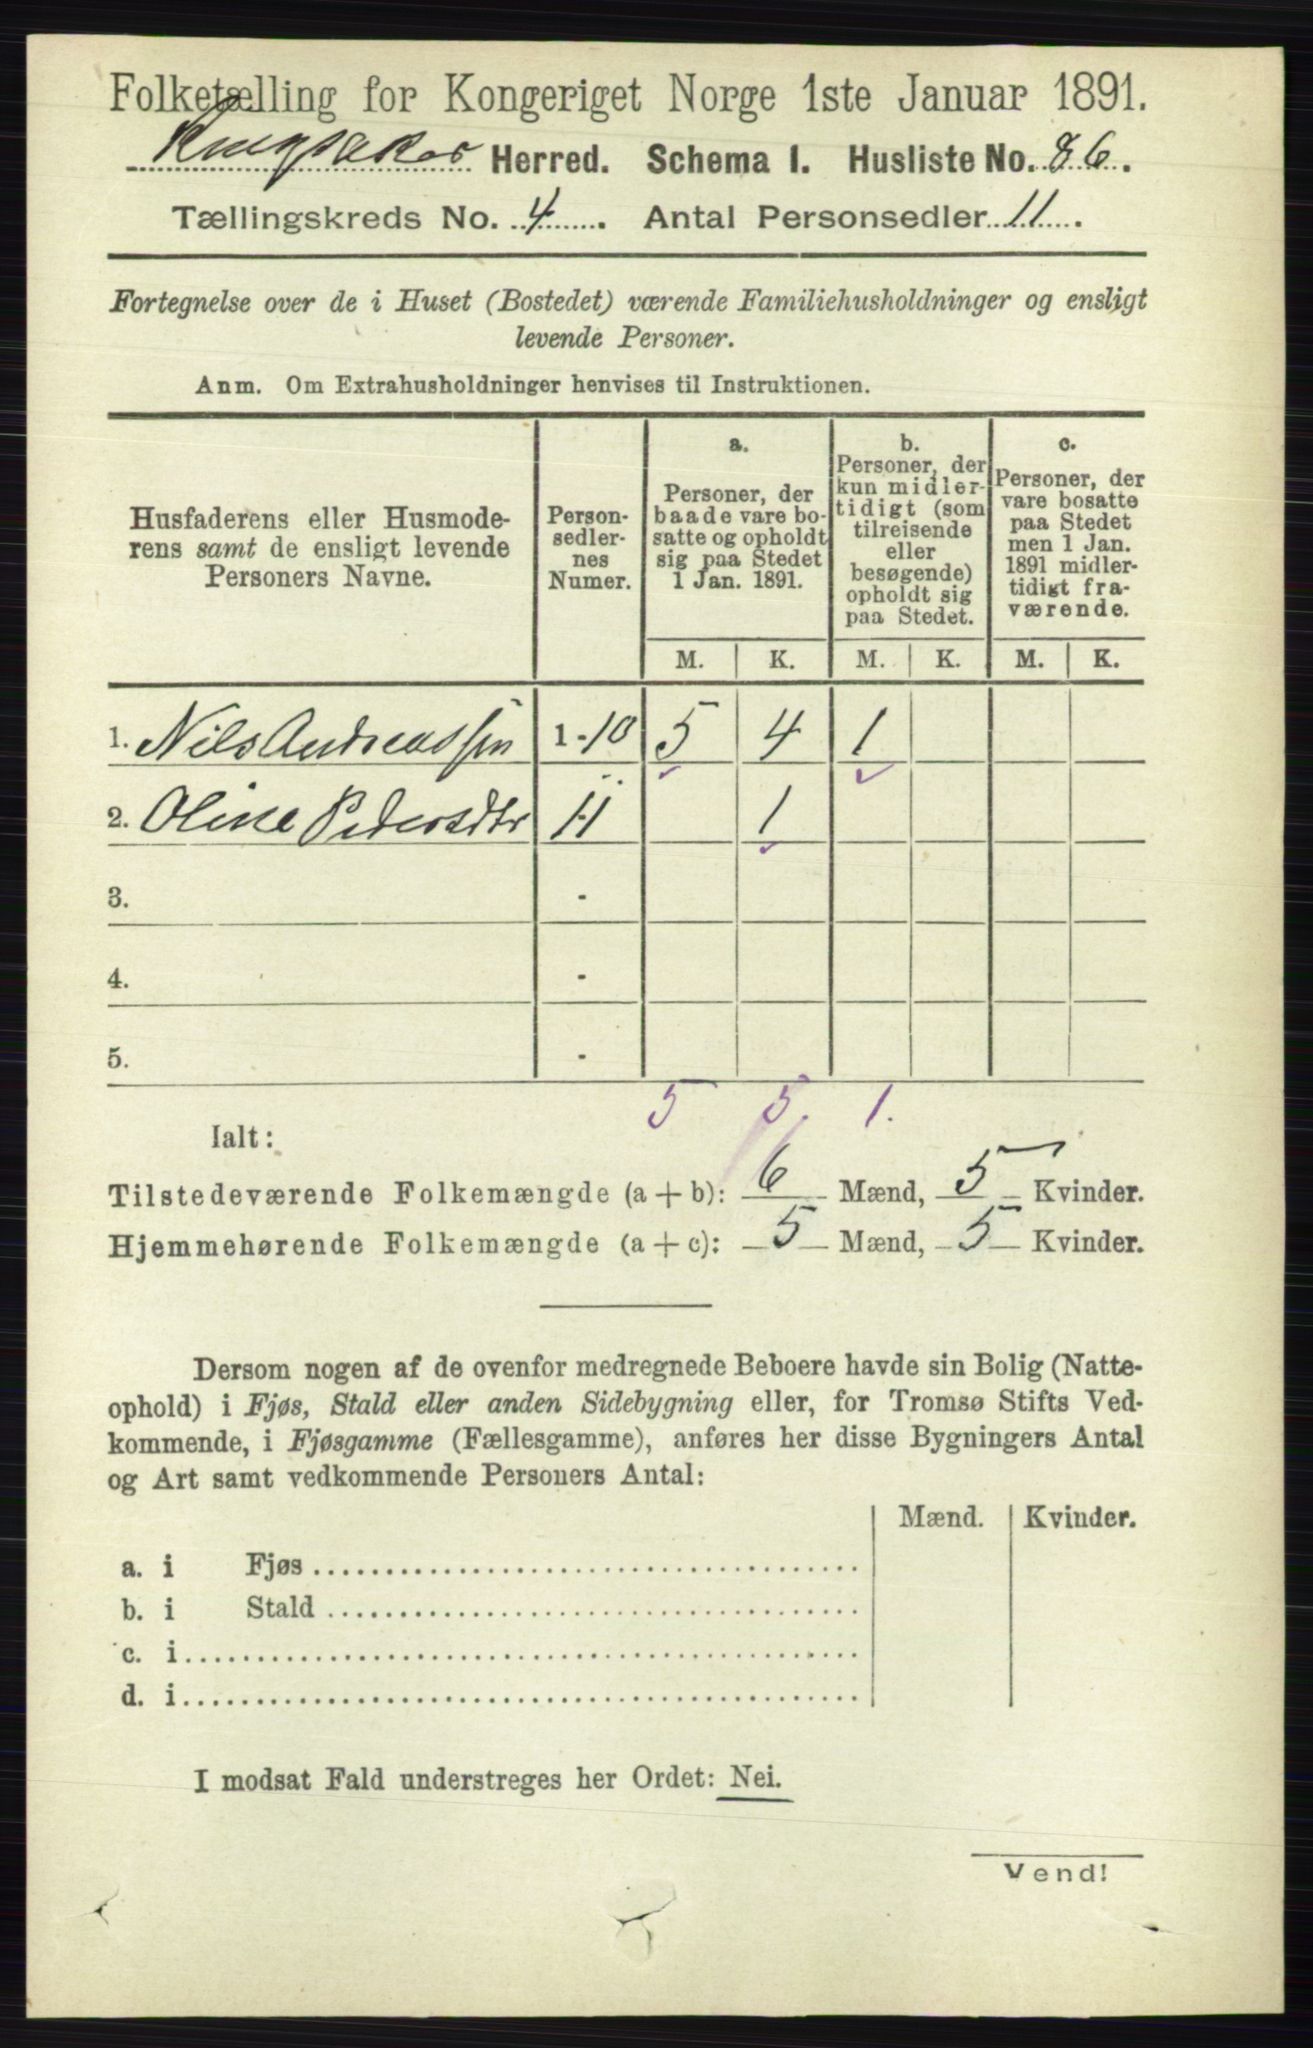 Folketælling for Kongeriget Norge 1ste Januar 1891.
Ringsaker Herred. Schema 1. Husliste No. 86.
Tællingskreds No. 4. Antal Personsedler 11.
Fortegnelse over de i Huset (Bostedet) værende Familiehusholdninger og ensligt
levende Personer.
Anm. Om Extrahusholdninger henvises til Instruktionen.
Husfaderens eller Husmode-
rens samt de ensligt levende
Personers Navne.
Person-
sedler-
nes
Numer.
a.
Personer, der
baade vare bo-
satte og opholdt
sig paa Stedet
1 Jan. 1891.
b.
Personer, der
kun midler-
tidigt (som
tilreisende
eller
besøgende)
opholdt sig
paa Stedet.
c.
Personer, der
vare bosatte
paa Stedet
men 1 Jan.
1891 midler-
tidigt fra-
værende.
M. K. M. K. M. K.
1. Nils Andreassen 1-10 5 4 1
2. Oline Pedersdtr 11 1
3. -
4. -
5. -
5 5. 1.
Ialt:
Tilstedeværende Folkemængde (a + b): 6 Mænd, 5 Kvinder.
Hjemmehørende Folkemængde (a + c): 5 Mænd, 5 Kvinder.
Dersom nogen af de ovenfor medregnede Beboere havde sin Bolig (Natte-
ophold) i Fjøs, Stald eller anden Sidebygning eller, for Tromsø Stifts Ved-
kommende, i Fjøsgamme (Fællesgamme), anføres her disse Bygningers Antal
og Art samt vedkommende Personers Antal:
Mænd. Kvinder.
a. i Fjøs
b. i Stald
c. i
d. i
I modsat Fald understreges her Ordet: Nei.
Vend!